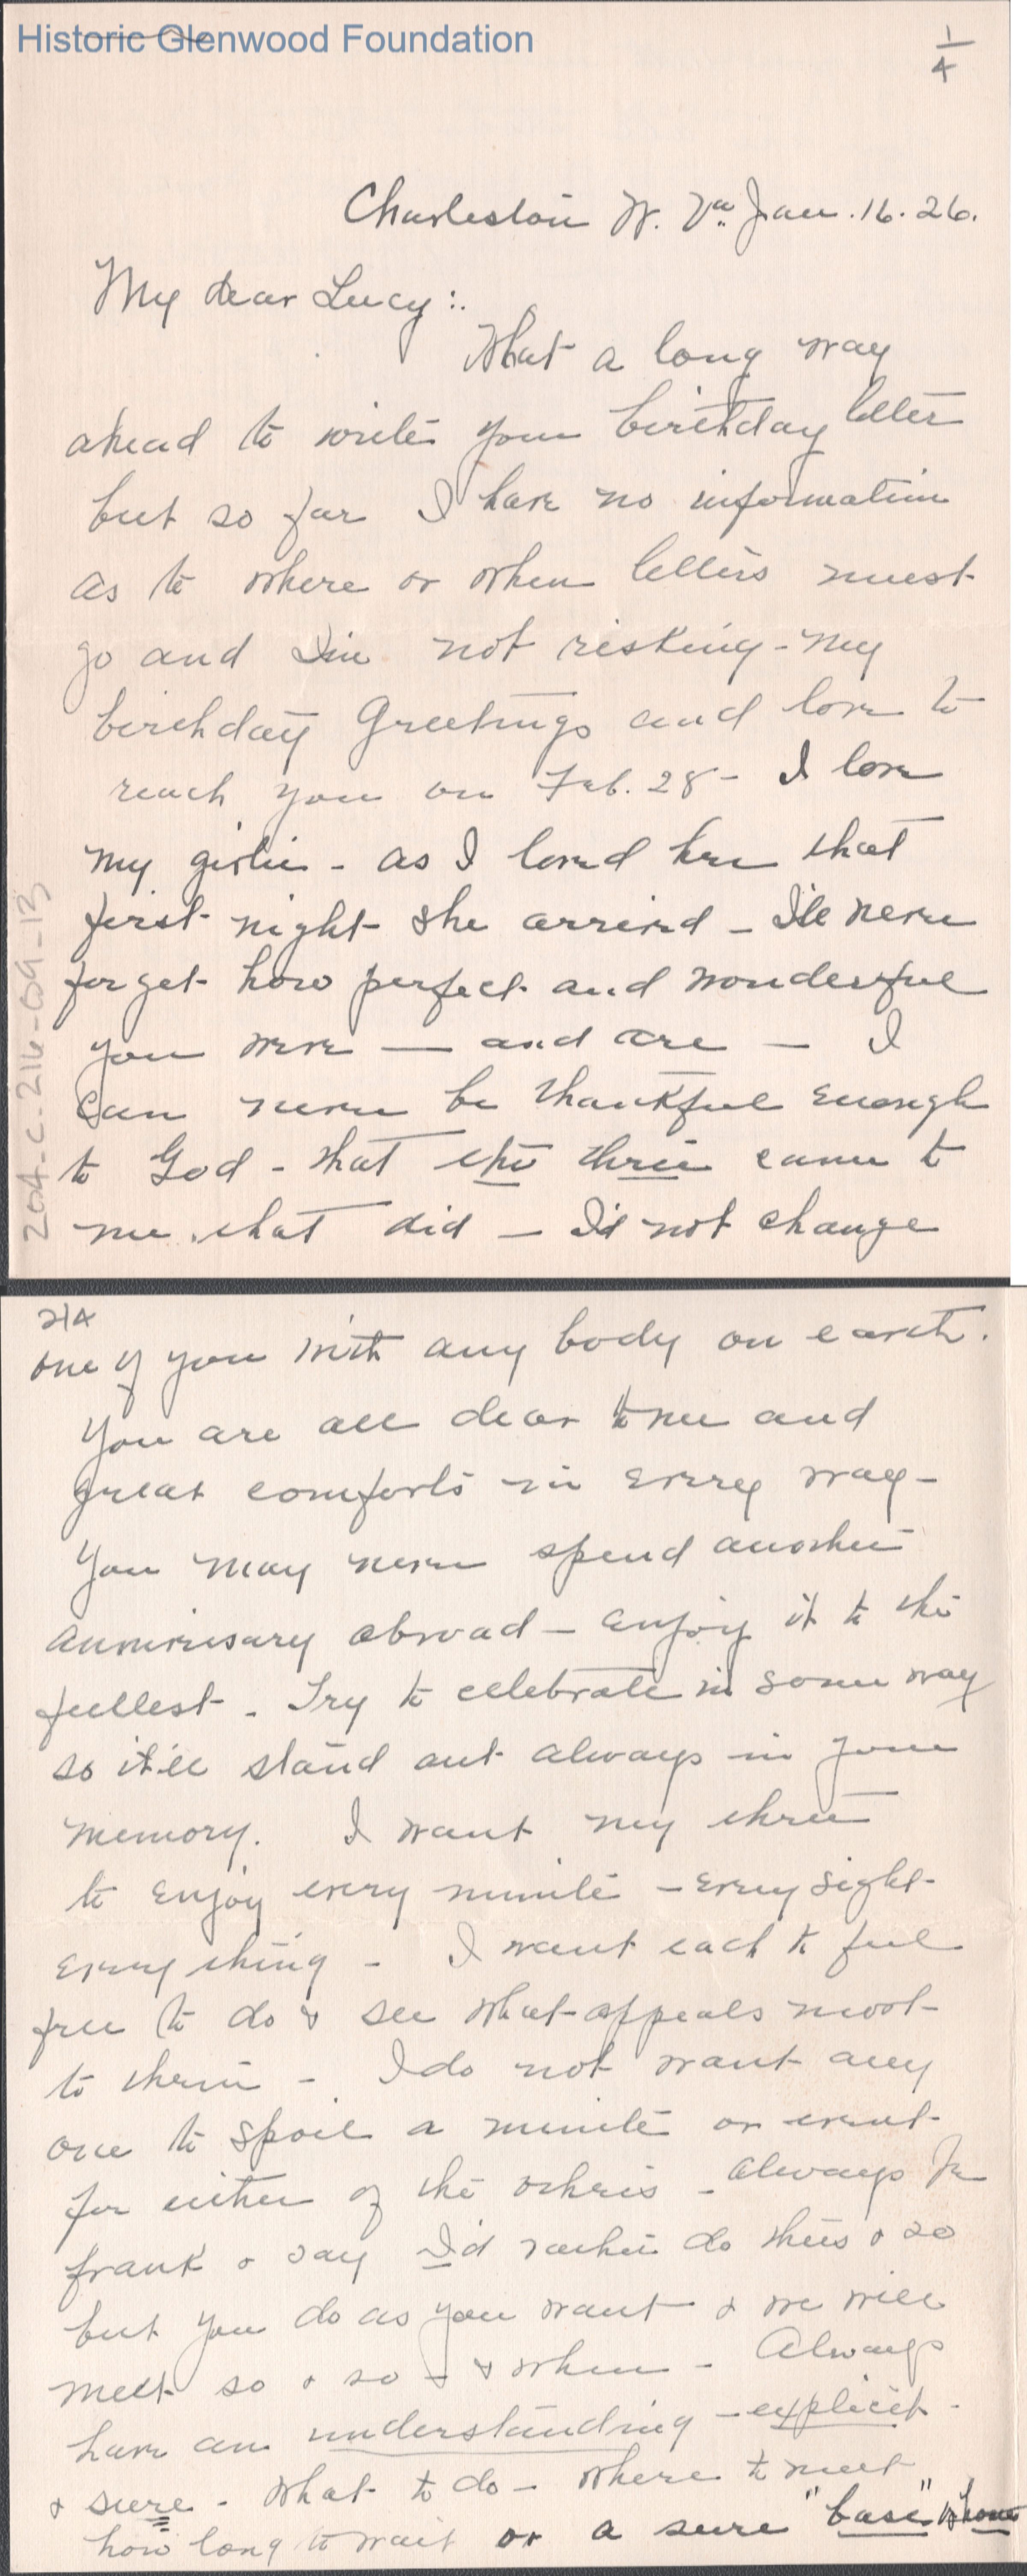 Historic Glenwood Foundation
1/4
Charleston W. Va. Jan. 16. 26.
My dear Lucy:.
What a long way
ahead to write your birthday letter
but so far I have no information
as to where or when letters must
go and I'm not risking - my
birthday Greetings and love to
reach you on Feb. 28 - I love
my girlie - as I loved her that
first night she arrived - I'll never
forget how perfect and wonderful
you were — and are — I
can never be thankful enough
to God - that the three came to
me that did — I'd not change
204-C-216-09-13
2/4
one of you with any body on earth.
You are all dear to me and
great comforts in every way -
You may never spend another
anniversary abroad - enjoy it to the
fullest - Try to celebrate in some way
so it'll stand out always in your
memory. I want my three
to enjoy every minute - every sight -
every thing - I want each to feel
free to do & see what appeals most
to them - I do not want any
one to spoil a minute or event
for either of the others - always be
frank & say I'd rather do thus & so
but you do as you want & we will
meet so & so - & when - Always
have an understanding - explicit -
& sure - What to do - Where to meet
how long to wait or a sure "base"